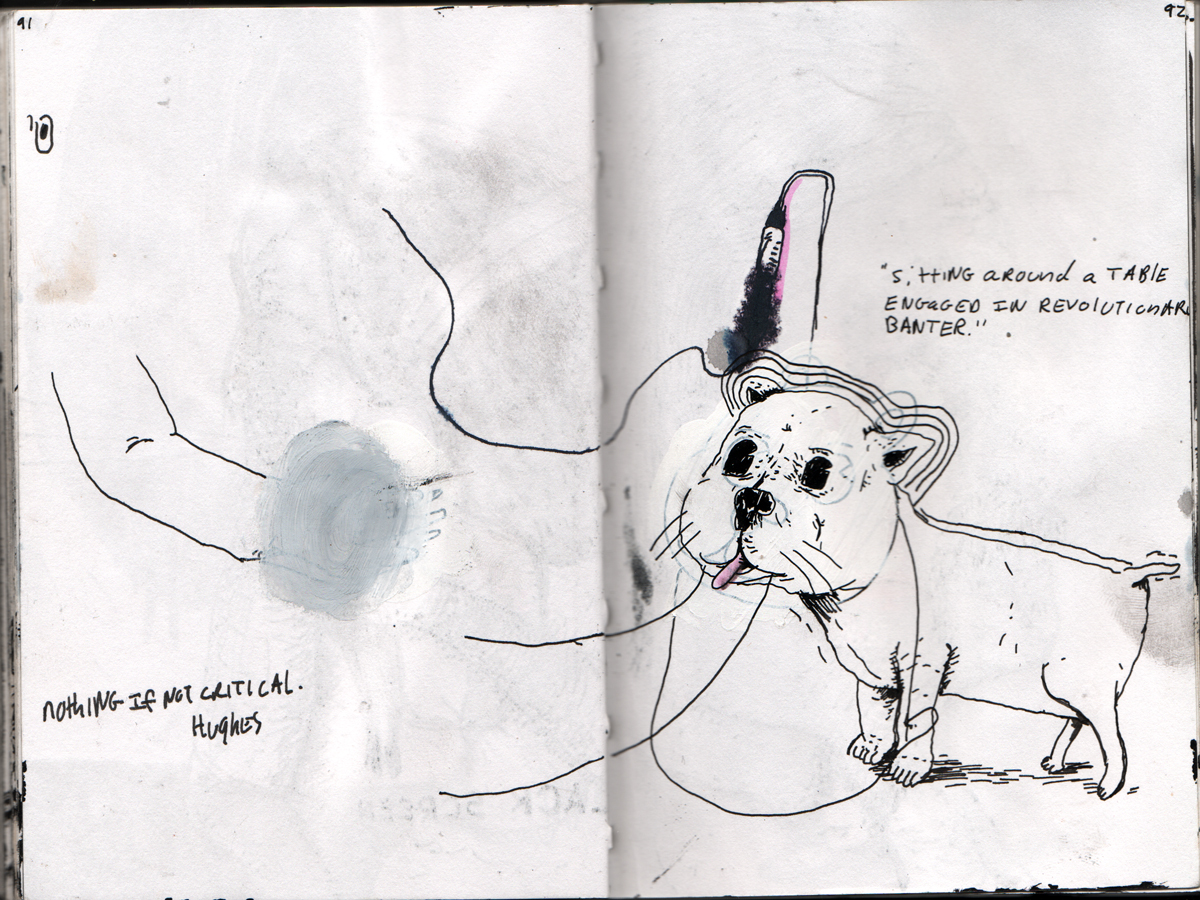 91
92
nothING If NOT CRITICAL.
HugHES
"SittING aRound a TABlE
ENGaGED IN REVOlUTIONAR
BANTER."